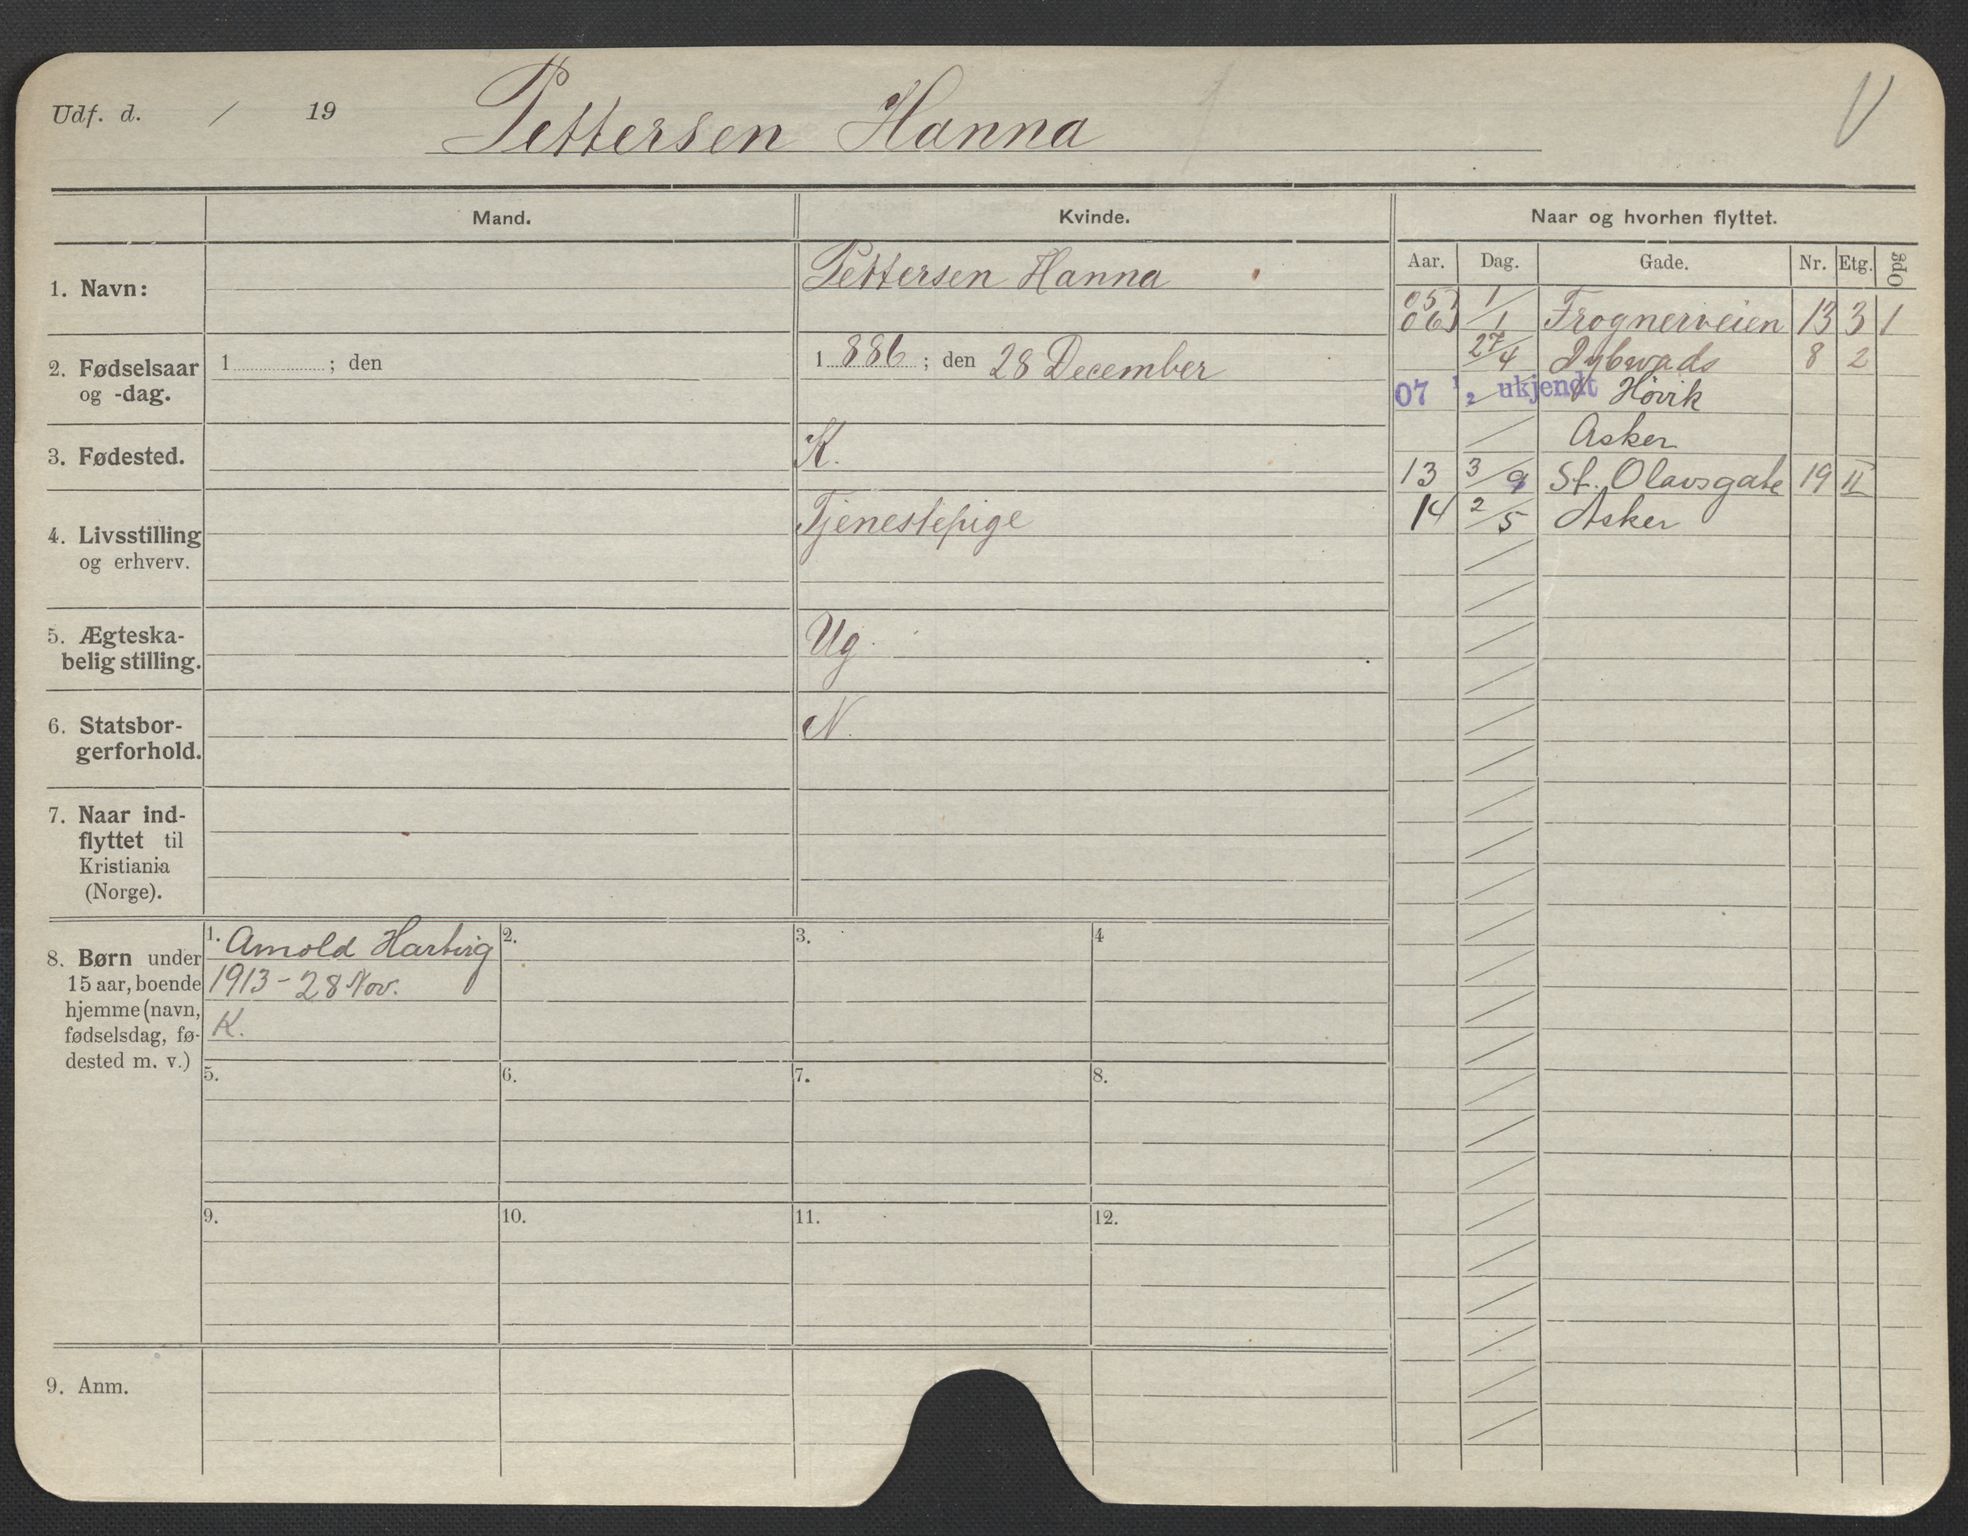 Udf. d. / 19 Pettersen Hanna V
Mand. Kvinde. Naar og hvorhen flyttet.
Aar. Dag. Gade. Nr. Etg. Opg
1. Navn: Pettersen Hanna
2. Fødselsaar 1 ; den 1 886 ; den 28 December
og -dag.
3. Fødested. K.
4. Livsstilling Tjenestepige
og erhverv.
5. Ægteska- Ug.
belig stilling.
6. Statsbor- N.
gerforhold.
7. Naar ind-
flyttet til
Kristiania
(Norge).
05 1/1 Frognerveien 13 3 1
06
27/4 Dybwads 8 2
07 1/2 ukjendt Høvik
/ Asker
13 3/9 St. Olavsgate 19 II
14 2/5 Asker
8. Børn under
15 aar, boende
hjemme (navn,
fødselsdag, fø-
dested m. v.)
1. Arnold Hartvig 2. 3. 4
1913 - 28 Nov.
K.
5. 6. 7. 8.
9. 10. 11. 12.
9. Anm.